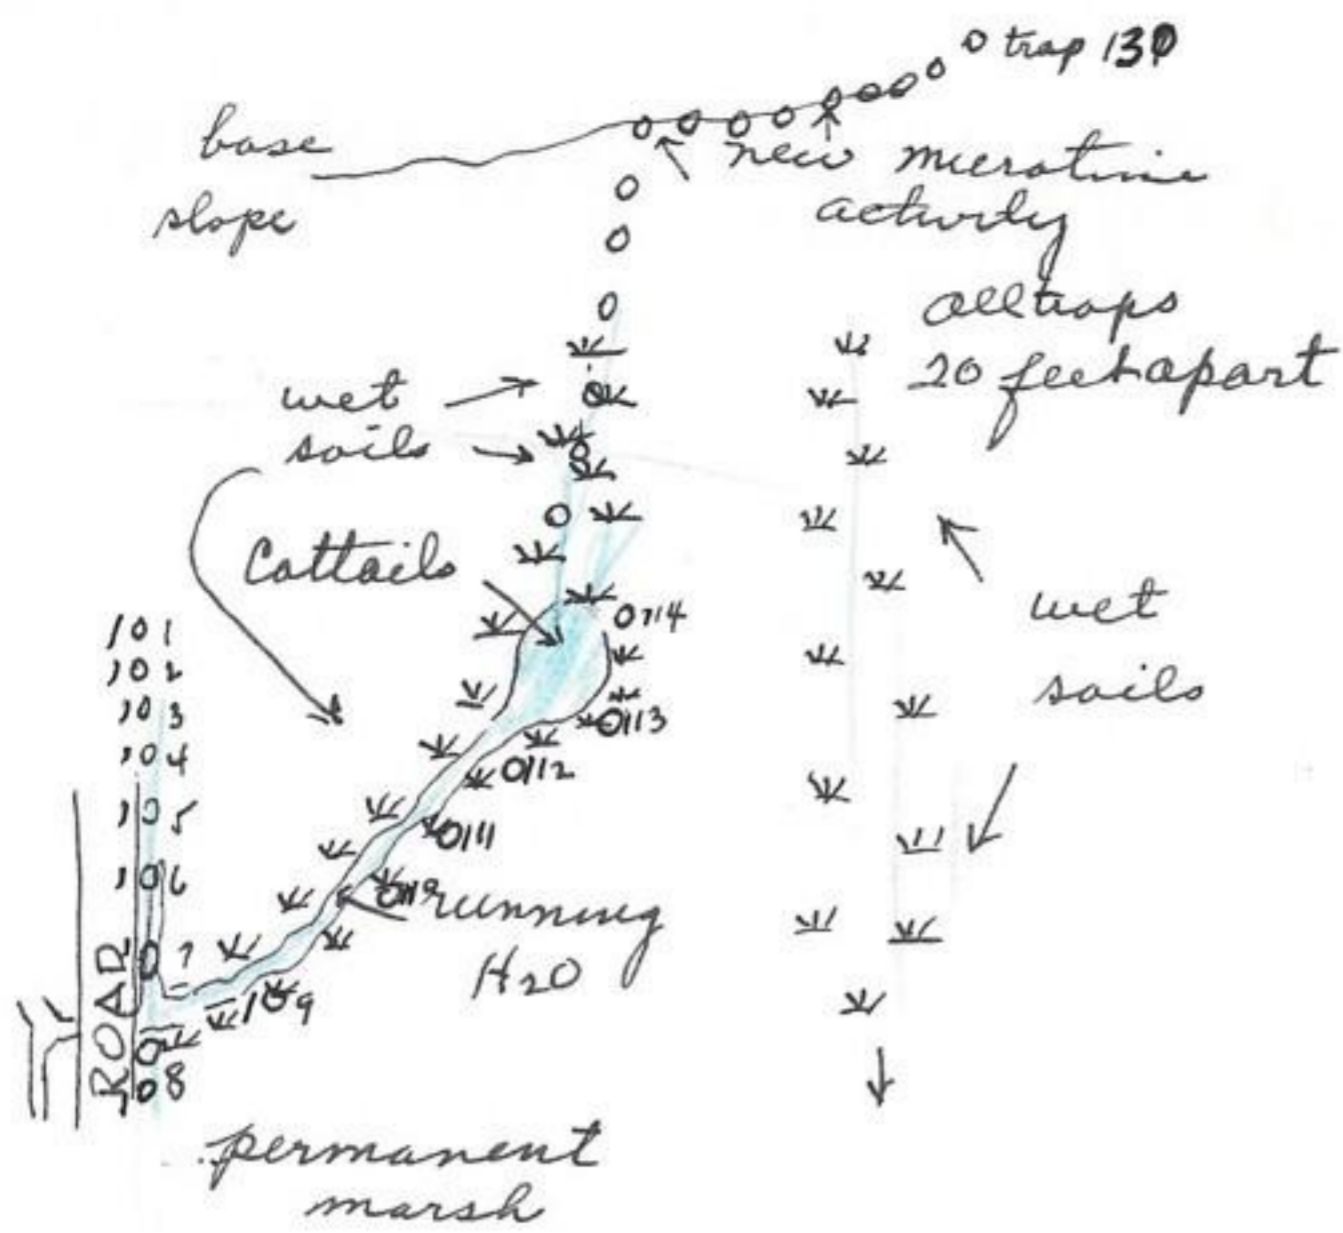 trap 130
base
slope
new microtine
activity
All traps
20 feet apart
wet
soils
Cattails
wet
soils
0114
0113
0112
0111
0110
running
H2O
109
101
102
103
104
105
106
107
108
ROAD
permanent
marsh